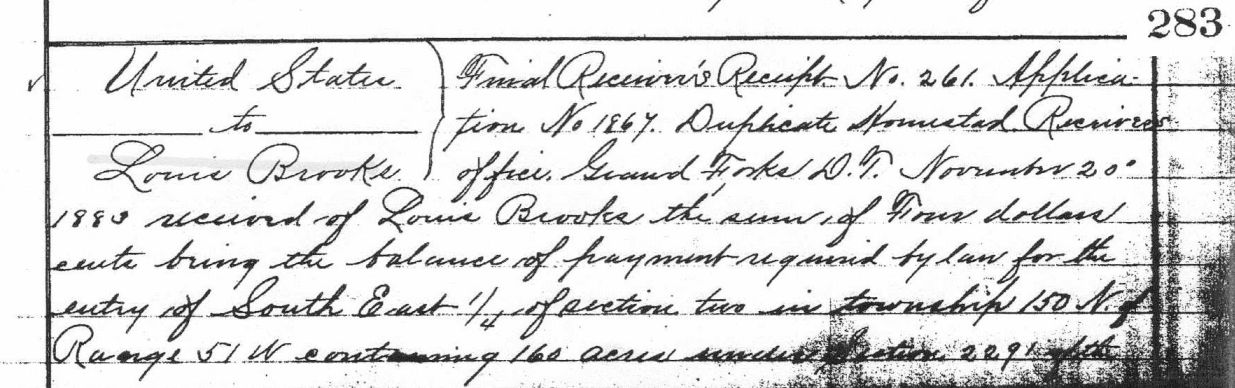 283
United States Final Receiver's Receipt No. 261. Applica-
to tion No 1867. Duplicate Homestead Receivers
Louis Brooks office. Grand Forks D.T. November 20
1883 received of Louis Brooks the sum of Four dollars
cents being the balance of payment required by law for the
entry of South East 1/4 of section two in township 150 N. of
Range 51 W containing 160 acres under Section 2291 of the